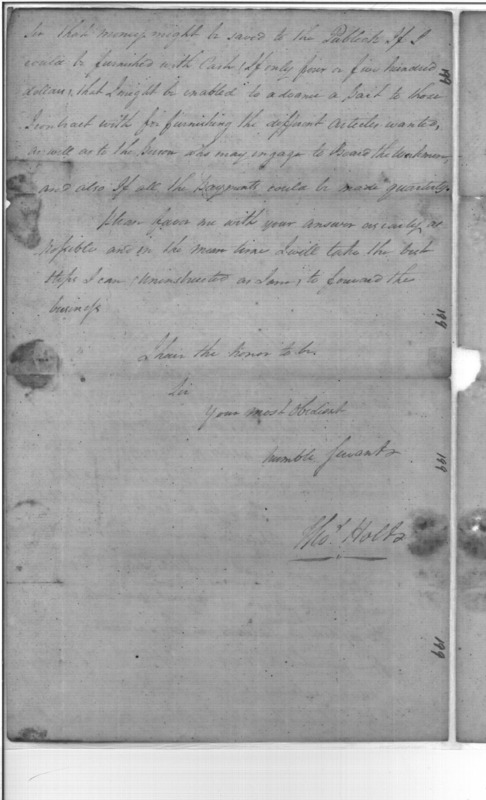 Sir that money might be saved to the Publick If I
could be furnished with Cash (If only four or five hundred
dollars, that I might be enabled to advance a Part to those
I contract with for furnishing the different articles wanted,
as well as to the Person who may engage to Board the Workmen
and also If all the payments could be made quarterly.
please favor me with your answer as early as
Possible and in the mean time I will take the best
steps I can Uninstructed as I am, to forward the
business
I have the honor to be
Sir
Your most Obedient
humble Servant
Thos. Holt
199
199
199
199